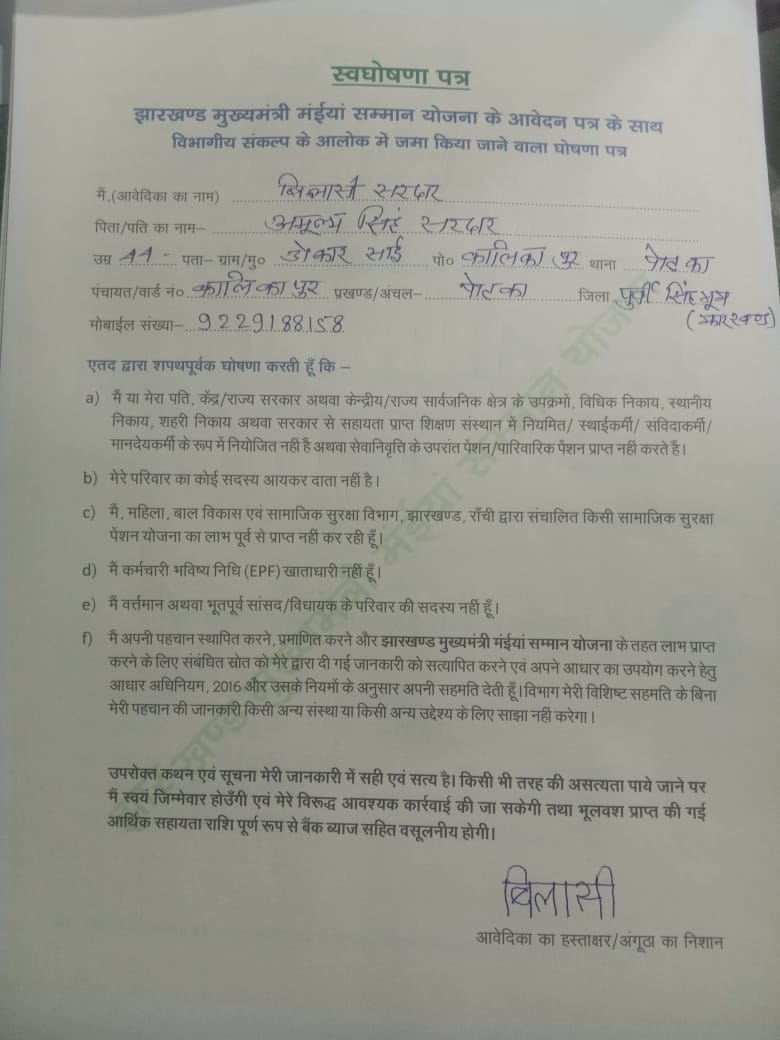 स्वघोषणा पत्र
झारखण्ड मुख्यमंत्री मंईयां सम्मान योजना के आवेदन पत्र के साथ
विभागीय संकल्प के आलोक में जमा किया जाने वाला घोषणा पत्र
मैं,(आवेदिका का नाम) बिलासी सरदार
पिता/पति का नाम– अमूल्य सिंह सरदार
उम्र 44 पता– ग्राम/मु० डोकार साई पो० कालिकापुर थाना पोटका
पंचायत/वार्ड नं० कालिकापुर प्रखण्ड/अंचल– पोटका जिला पुर्वी सिंहभूम
मोबाईल संख्या– 9229188158 (झारखण्ड)
एतद द्वारा शपथपूर्वक घोषणा करती हूँ कि –
a) मैं या मेरा पति, केंद्र/राज्य सरकार अथवा केन्द्रीय/राज्य सार्वजनिक क्षेत्र के उपक्रमों, विधिक निकाय, स्थानीय
निकाय, शहरी निकाय अथवा सरकार से सहायता प्राप्त शिक्षण संस्थान में नियमित/ स्थाईकर्मी/ संविदाकर्मी/
मानदेयकर्मी के रूप में नियोजित नहीं है अथवा सेवानिवृत्ति के उपरांत पेंशन/पारिवारिक पेंशन प्राप्त नहीं करते है।
b) मेरे परिवार का कोई सदस्य आयकर दाता नहीं है।
c) मैं, महिला, बाल विकास एवं सामाजिक सुरक्षा विभाग, झारखण्ड, राँची द्वारा संचालित किसी सामाजिक सुरक्षा
पेंशन योजना का लाभ पूर्व से प्राप्त नहीं कर रही हूँ।
d) मैं कर्मचारी भविष्य निधि (EPF) खाताधारी नहीं हूँ।
e) मैं वर्त्तमान अथवा भूतपूर्व सांसद/विधायक के परिवार की सदस्य नहीं हूँ।
f) मैं अपनी पहचान स्थापित करने, प्रमाणित करने और झारखण्ड मुख्यमंत्री मंईयां सम्मान योजना के तहत लाभ प्राप्त
करने के लिए संबंधित स्रोत को मेरे द्वारा दी गई जानकारी को सत्यापित करने एवं अपने आधार का उपयोग करने हेतु
आधार अधिनियम, 2016 और उसके नियमों के अनुसार अपनी सहमति देती हूँ। विभाग मेरी विशिष्ट सहमति के बिना
मेरी पहचान की जानकारी किसी अन्य संस्था या किसी अन्य उद्देश्य के लिए साझा नहीं करेगा।
उपरोक्त कथन एवं सूचना मेरी जानकारी में सही एवं सत्य है। किसी भी तरह की असत्यता पाये जाने पर
मैं स्वयं जिम्मेवार होउँगी एवं मेरे विरूद्ध आवश्यक कार्रवाई की जा सकेगी तथा भूलवश प्राप्त की गई
आर्थिक सहायता राशि पूर्ण रूप से बैंक ब्याज सहित वसूलनीय होगी।
बिलासी
आवेदिका का हस्ताक्षर/अंगूठा का निशान
झारखण्ड मुख्यमंत्री मंईयां सम्मान योजना